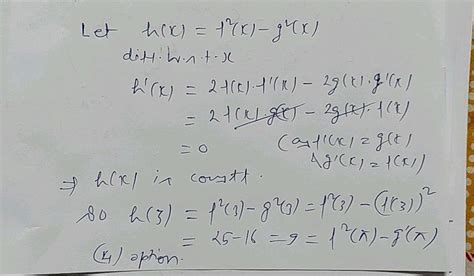 Let h(x) = f²(x) - g²(x)
diff. w.r.t. x
h'(x) = 2f(x).f'(x) - 2g(x).g'(x)
= 2f(x) g(x) - 2g(x).f(x)
= 0 (as f'(x) = g(x)
& g'(x) = f(x))
⇒ h(x) is constt.
So h(3) = f²(3) - g²(3) = f²(3) - (f'(3))²
= 25 - 16 = 9 = f²(π) - g²(π)
(4) option.